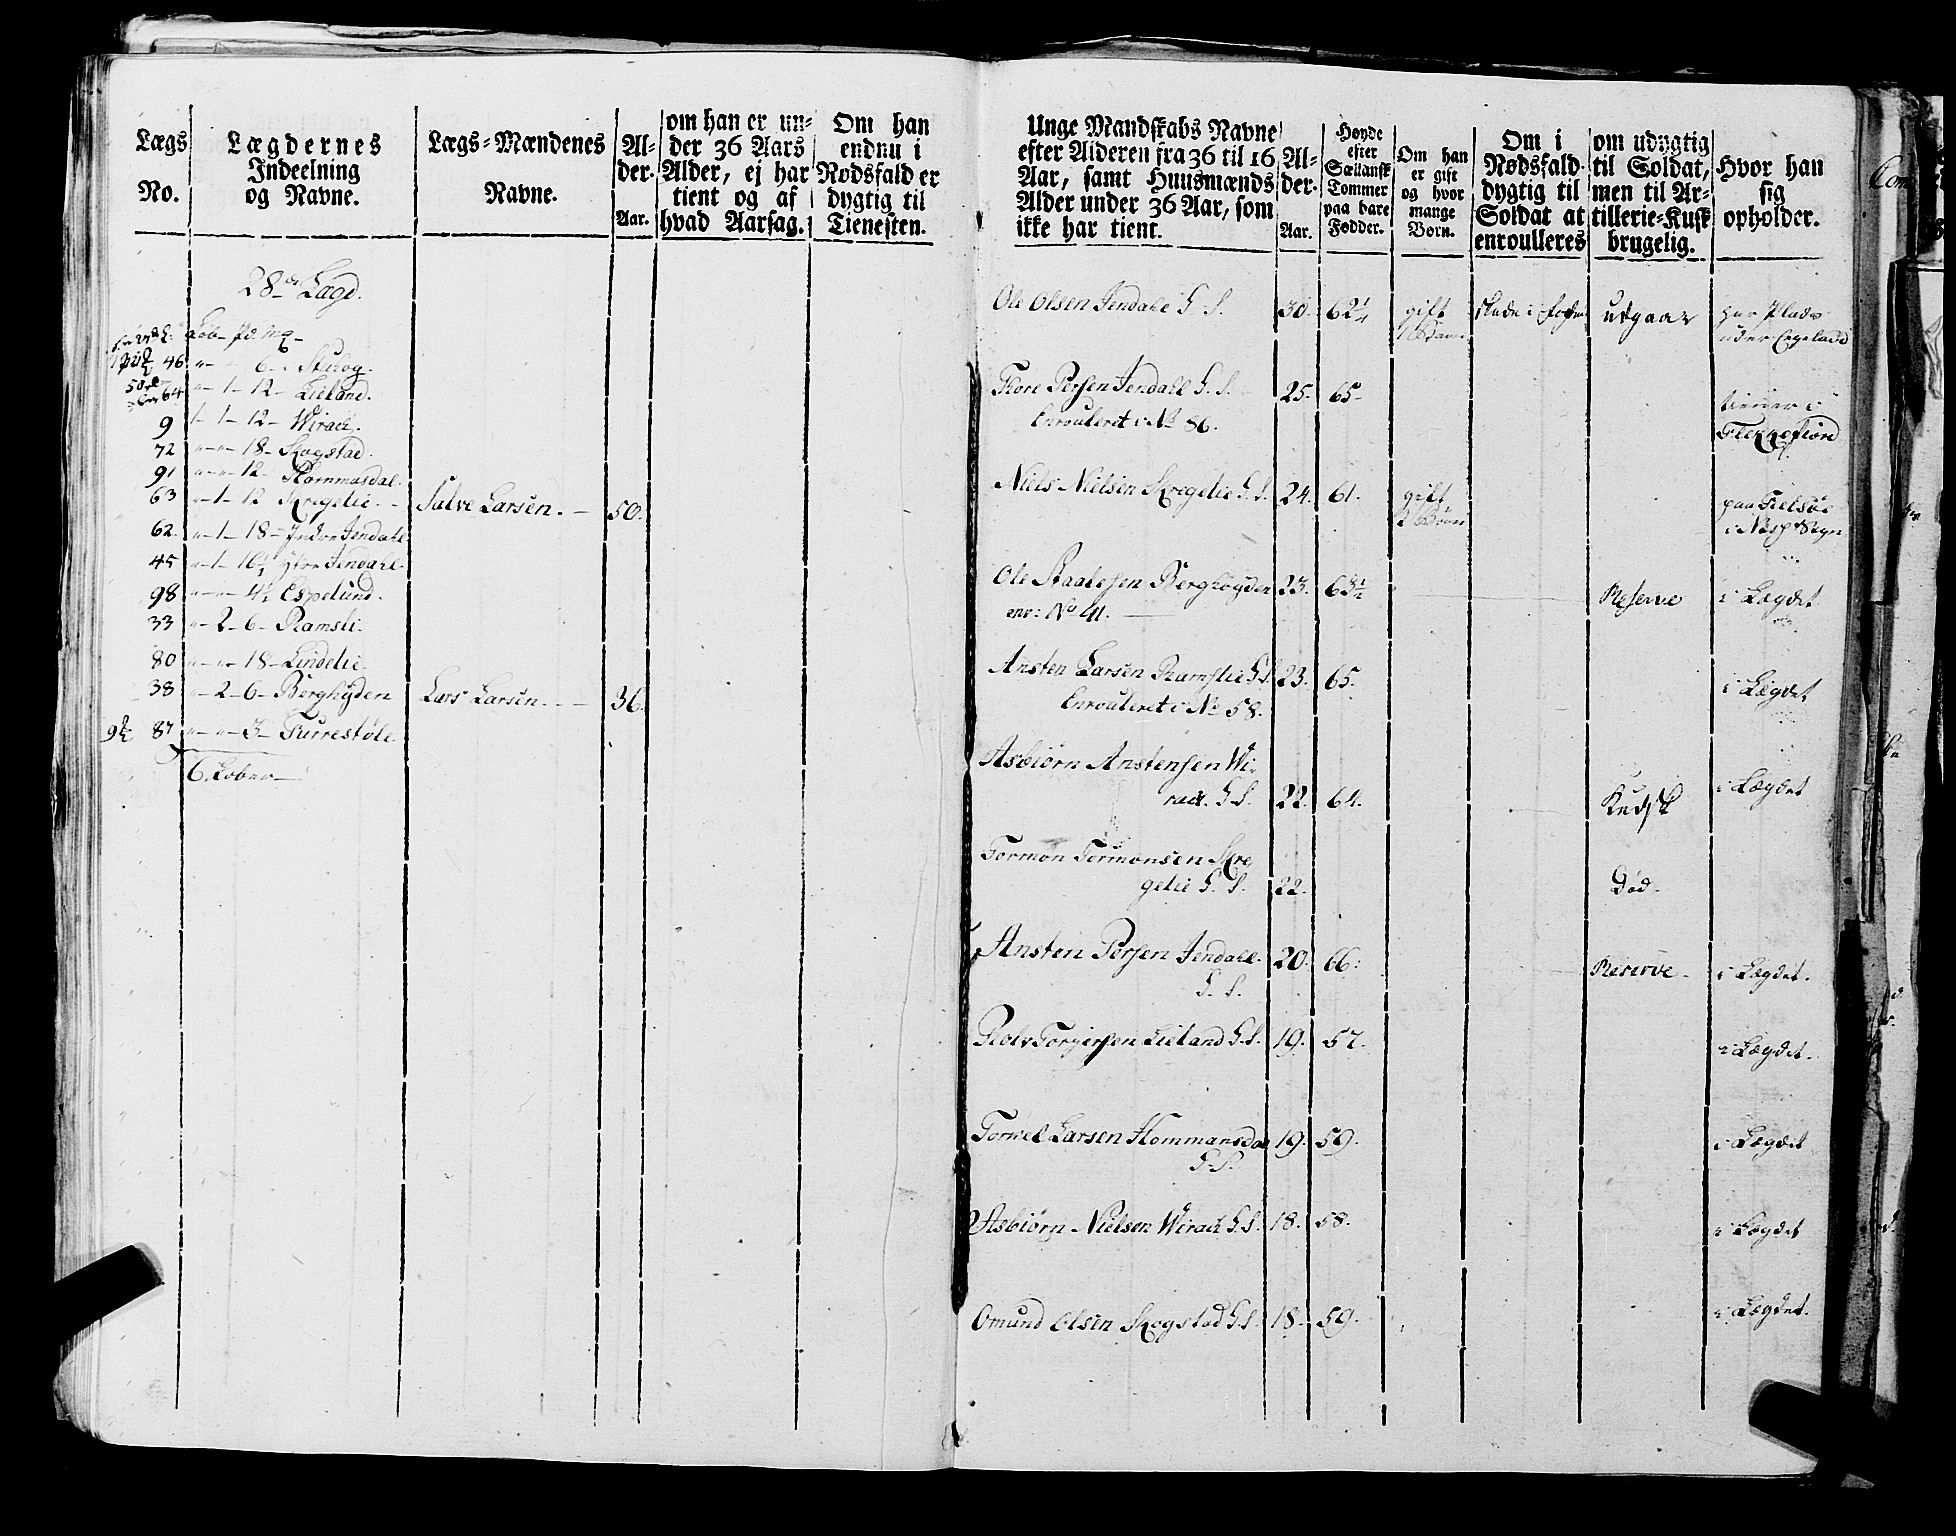 Lægs
No.
Lægdernes
Indeelning
og Navne.
Lægs-Mændenes
Navne.
Al-
der.
Aar.
om han er un-
der 36 Aars
Alder, ej har
tient og af
hvad Aarsag.
Om han
endnu i
Nødsfald er
dygtig til
Tienesten.
28de Lægd.
46 " - " 6 - Stuog.
64 " - 1 - 12 - Lieland.
9 1 - 1 - 12 - Wirach.
72 " - " - 18 - Skogstad.
91 " - " - 12 - Hommasdal.
63 " - 1 - 12 Skregelie. - Salve Larsen. - 50.
62. " - 1 - 18 - Indre Jendahl
45 " - 1 - 16½ Ytre Jendahl.
98 " - " - 4½ Espelund.
33 " - 2 - 6 - Ramsli.
80 " - " - 18 - Lindelie.
38 " - 2 - 6 - Berghøyden Lars Larsen. - - 36.
87 " - " - 3 - Furrestøle.
6. Lober
Unge Mandskabs Navne
efter Alderen fra 36 til 16
Aar, samt Huusmænds
Alder under 36 Aar, som
ikke har tient.
Al-
der.
Aar.
Høyde
efter
Sællansk
Tommer
paa bare
Fødder.
Om han
er gift
og hvor
mange
Børn.
Om i
Nødsfald
dygtig til
Soldat at
enroulleres
om udygtig
til Soldat,
men til Ar-
tillerie-Kusk
brugelig.
Hvor han
sig
opholder.
Ole Olsen Jendahl G. S. 30. 62¼ gift udgaar har Plads
1 Barn under Egeland
Tore Persen Jendahl G. S. 25. 65. tiener i
Enroulleret i No 86. Flekkefiord
Niels Nielsen Skregelie G. S. 24. 61. gift paa Fielsøe
2 Børn i Næss Sogn
Ole Staalesen Berghøyden 23. 63½ Reserve i Lægdet
enr: No 41.
Ansten Larsen Ramslie G. S. 23. 65. i Lægdet
Enroulleret i No 58.
Asbiørn Anstensen Wi-
rach. G. S. 22. 64. Kudsk i Lægdet
Tormon Tormonsen Skre
gelie G. S. 22. Død.
Ansten Persen Jendahl. 20. 66. Reserve. i Lægdet.
G. S.
Rolv Torgersen Lieland G. S. 19. 57. i Lægdet.
Tornel Larsen Hommansdal 19. 59. i Lægdet
G. S.
Asbiørn Nielsen Wirach G. S. 18. 58. i Lægdet
Omund Olsen Skogstad G. S. 18. 59. i Lægdet.